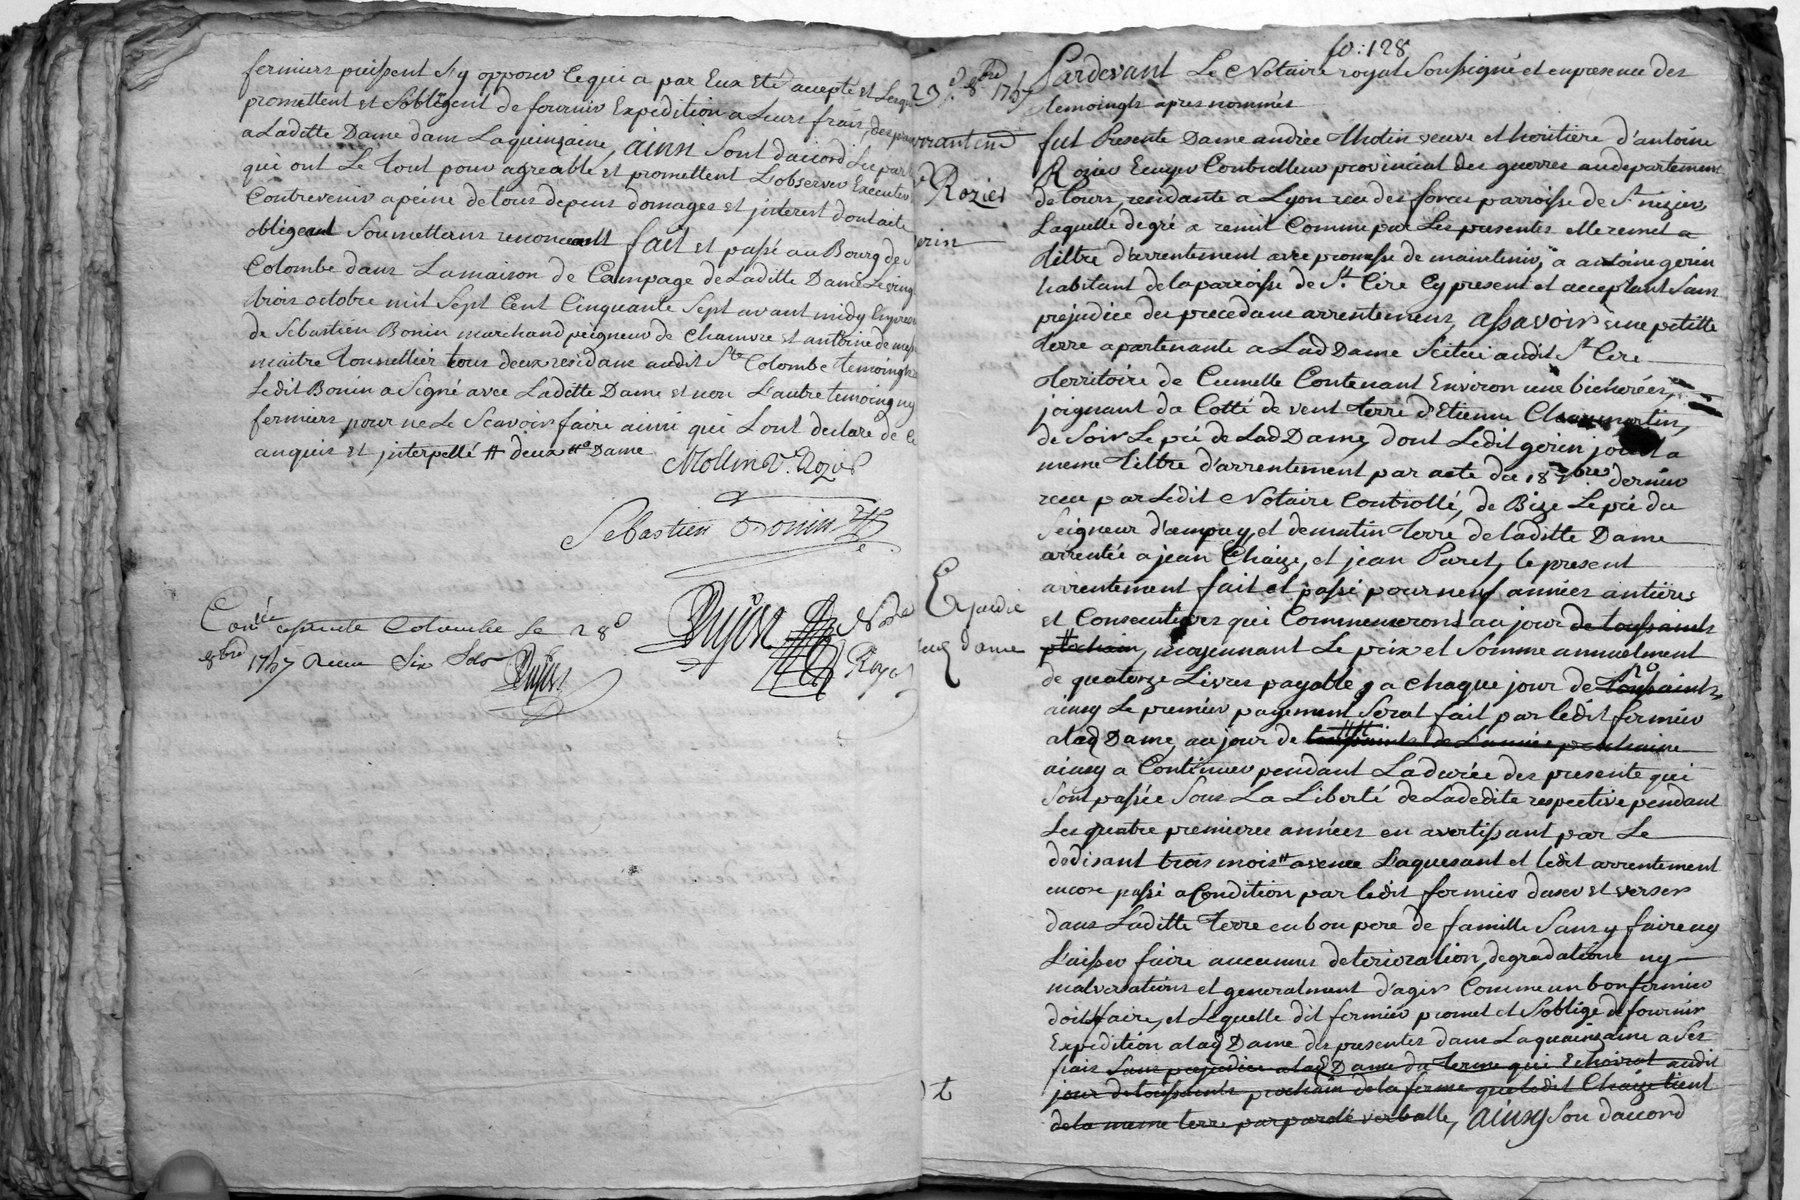 fermiers puissent s'y opposer ce qui a par Eux Eté accepté et
promettent et S'obligent de fournir Expedition a Leurs frais des
a Laditte Dame dans Laquinzaine, ainsi Sont d'accord Les par
qui ont Le tout pour agreable et promettent L'observer Executer
Contrevenir a peine de tous depens domages et interest dont acte
obligeant Soumettans renonceant fait et passé au Bourg de
Colombe dans Lamaison de Campage de Laditte Dame Le ving
trois octobre mil Sept Cent Cinquante Sept avant midy En
de Sebastien Bonin marchand peigneur de Chanvre et antoine de
maitre tonnellier tous deux residant audit Ste Colombe temoingts
Ledit Bonin a Signé avec Laditte Dame et non L'autre temoing ny
fermiers pour ne Le Scavoir faire ainsi qui Lont declaré de ce
anquis et interpellé # deux # Dame
Mollin Ve Rozier
Sebastien Bonin
Dujast No Re
Royal
Conlé a Sainte Colombe Le 28e
8bre 1757 Receu Six Sols
Dujast
fo: 128
23e 8bre 1757
arrantem
Ve Rozier
erin
Expedié
dame
t
Pardevant Le Notaire royal Soussigné et en presence des
temoingts apres nommés
fut Presente Dame andrée Molin veuve et heritiere d'antoine
Rozier Ecuyer Controlleur provincial des guerres au departement
de tours, residante a Lyon rue des forces parroisse de St nizier
Laquelle de gré a remit Comme par Les presentes elle remet a
tiltre d'arrentement avec promesse de maintenir, a antoine gerin
habitant de la parroisse de St Cire Cy present et acceptant Sans
prejudice des precedans arrentemens, assavoir une petitte
terre apartenante a Lad Dame Scituée audit St Cire
territoire de Cumelle Contenant Environ une bicherées,
joignant da Cotté de vent terre d'Etienne Chaumartin,
de Soir Le pré de Lad Dame, dont Ledit gerin jouit a
meme tiltre d'arrentement par acte du 18 7bre dernier
receu par Ledit Notaire Controllé, de Bize Le pré du
Seigneur d'ampuy, et de matin terre de laditte Dame
arrentée a jean Chaize, et jean Paret, le present
arrentement fait et passé pour neuf années antieres
et Consecutives qui Commenceront au jour de toussaints
prochain, moyennant Le prix et Somme annuelment
de quatorze Livres payable, a chaque jour de toussaints
ainsy Le premier payement Serat fait par ledit fermier
a lad Dame, au jour de toussaints de L'année prochaine
ainsy a Continuer pendant La durée des presente qui
Sont passée Sous La Liberté de Ladedite respective pendant
Les quatre premieres années en avertissant par Le
dedisant trois mois avence L'aquesant et ledit arrentement
encore passé a Condition par ledit fermier d'user et verser
dans Laditte terre en bon pere de famille Sans y faire ny
L'aisser faire aucunes deterioration, degradations ny
malversations et generalment d'agir Comme un bon fermier
doit faire, et Lequelle dit fermier promet et S'oblige de fournir
Expedition a lad Dame des presentes dans Laquainzaine a Ses
frais Sans prejudice a lad Dame du terme qui Echoirat audit
jour de toussaints prochain de la ferme que ledit Chaize tient
de la meme terre par parole verballe, ainsy Son d'accord